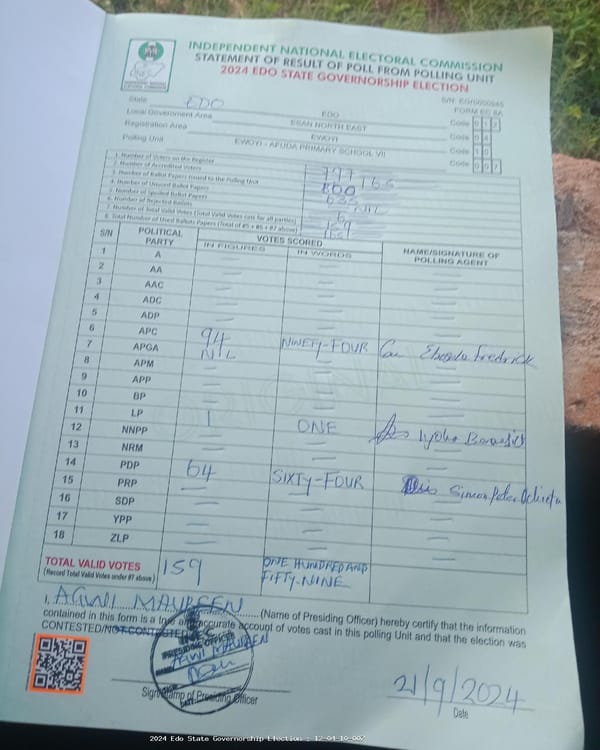 INDEPENDENT NATIONAL ELECTORAL COMMISSION
STATEMENT OF RESULT OF POLL FROM POLLING UNIT
2024 EDO STATE GOVERNORSHIP ELECTION
FORM EC 8A
State EDO
Local Government Area EDO Code 12
Registration Area ESAN NORTH EAST Code 04
EWOYI Code 10
Polling Unit EWOYI - AFUDA PRIMARY SCHOOL VII Code 007
1. Number of Voters on the Register 797
2. Number of Accredited Voters 165
3. Number of Ballot Papers Issued to the Polling Unit 800
4. Number of Unused Ballot Papers 635
5. Number of Spoiled Ballot Papers NIL
6. Number of Rejected Ballots 6
7. Number of Total Valid Votes (Total Valid Votes cast for all parties) 159
8. Total Number of Used Ballots Papers (Total of #5 + #6 + #7 above)
S/N POLITICAL PARTY VOTES SCORED NAME/SIGNATURE OF POLLING AGENT
IN FIGURES IN WORDS
1 A
2 AA
3 AAC
4 ADC
5 ADP
6 APC 94 NINETY-FOUR Fredrick
7 APGA NIL
8 APM
9 APP
10 BP
11 LP 1 ONE
12 NNPP
13 NRM
14 PDP 64 SIXTY-FOUR Simon Peter
15 PRP
16 SDP
17 YPP
18 ZLP
TOTAL VALID VOTES 159 ONE HUNDRED AND FIFTY-NINE
(Record Total Valid Votes under #7 above)
I, AGWI MAUREEN (Name of Presiding Officer) hereby certify that the information
contained in this form is a true and accurate account of votes cast in this polling Unit and that the election was
CONTESTED/NOT CONTESTED
PRESIDING OFFICER
AGWI MAUREEN
Sign/Stamp of Presiding Officer
21/9/2024
Date
2024 Edo State Governorship Election : 12-04-10-007